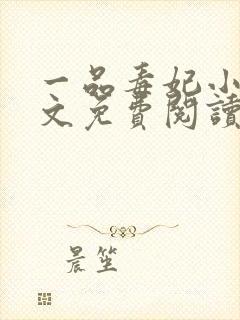 一品毒妃小
文免費閱讀
晨笙